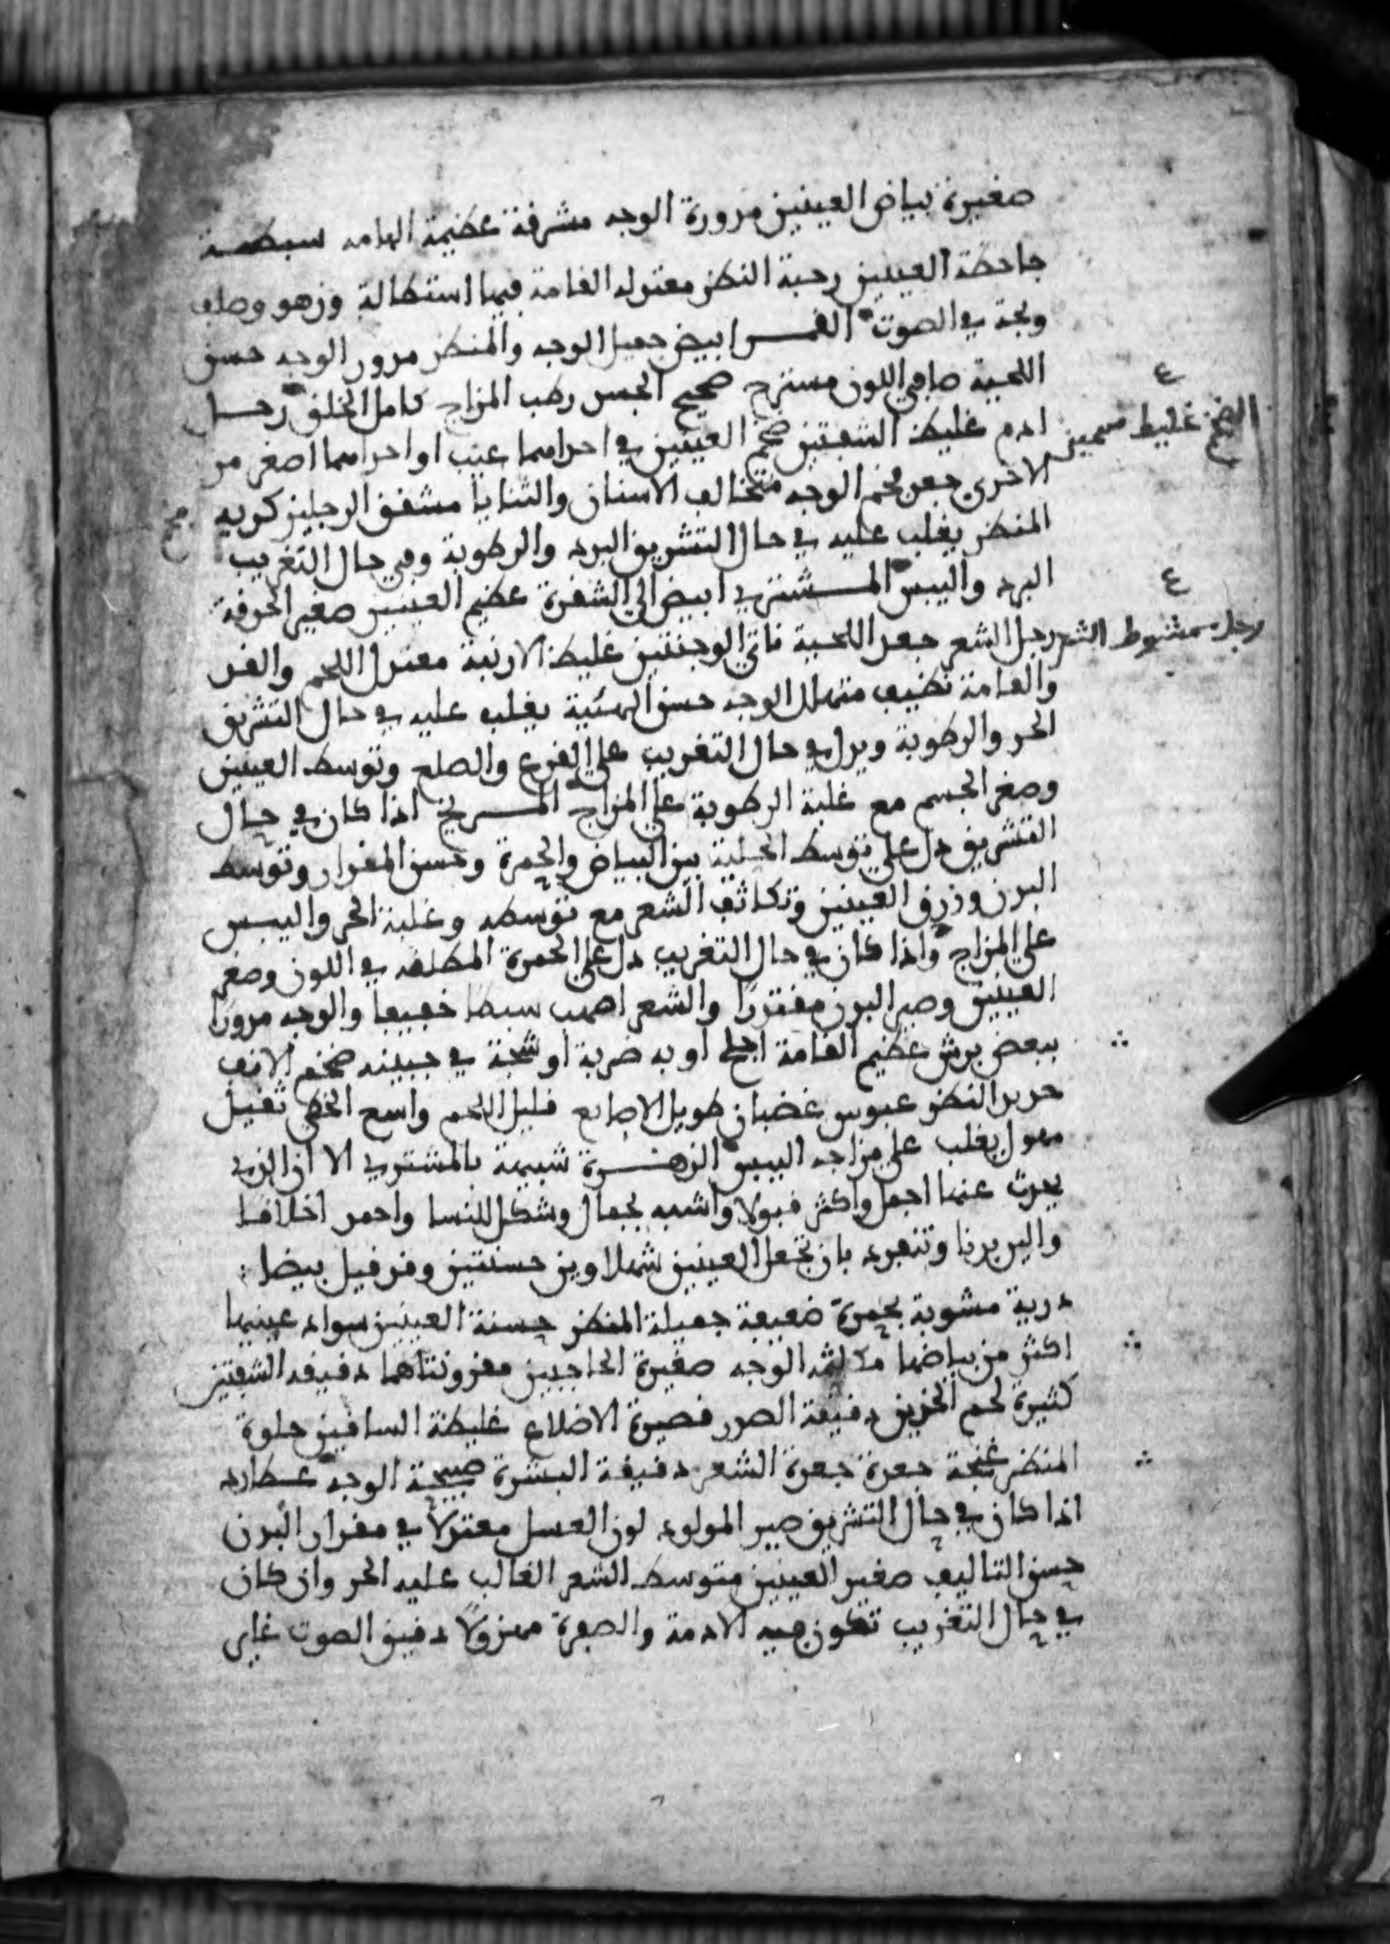 صغيرة بياض العينين مدورة الوجه مشرقة عظيمة الهامه سبطـــة
جاحظة العينين رحبة النظر معتدله القامة فيها استطالة وزهو وصلف
وبحة في الصوت القمـــر ابيض جميل الوجه والمنظر مدور الوجه حسن
اللحية صافي اللون مستدير صحيح الجسد رطب المزاج كامل الخلق زحـــل
ادم غليظ الشفتين ضخم العينين في احداهما عيب او احداهما اصغر من
الاخرى جعد ضخم الوجه متخالف الاسنان والثنايا مشقق الرجلين كريه
المنظر يغلب عليه في حال التشريق البرد والرطوبة وفي حال التغريب
البرد واليبس المـــشتري ابيض الى الشقرة عظيم العينين صغير الحدقة
رجل الشعر جعد اللحية ناتي الوجنتين غليظ الارنبة معتدل اللحم والقد
والقامة نظيف متهلل الوجه حسن الهيئة يغلب عليه في حال التشريق
الحر والرطوبة ويدل في حال التغريب على القرع والصلع وتوسط العينين
وصغر الجسم مع غلبة الرطوبة على المزاج المـــريخ اذا كان في حال
التشريق دل على توسط الحلية بين البياض والحمرة وحسن المقدار وتوسط
البدن وزرق العينين وتكاثف الشعر مع توسطه وغلبة الحر واليبس
على المزاج واذا كان في حال التغريب دل على الحمرة المطلقه في اللون وصغر
العينين وصير البدن مقتدرا والشعر اصهب سبطا خفيفا والوجه مدورا
ببعض برش عظيم القامة اجلح او به ضربة او شجة في جبينه ضخم الانف
حديد النظر عبوس غضبان طويل الاصابع قليل اللحم واسع الخطى ثقيل
مهول يغلب على مزاجه اليبس الزهـــرة شبيهة بالمشتري الا ان الذي
يحدث عنها اجمل واكثر قبولا واشبه بجمال وشكل للنسا واحمد اخلاقا
والين بدنا وتنفرد بان تجعل العينين شهلاوين حسنتين وقد قيل بيضا
درية مشوبة بحمرة ضعيفة جميلة المنظر حسنة العينين سواد عينيها
اكثر من بياضها الوجه صغيرة الحاجبين مقرونتاهما دقيقه الشفتين
كثيرة لحم الخدين دقيقة الصدر قصيرة الاضلاع غليظة الساقين حلوة
المنظر غنجة جعدة جعدة الشعر دقيقة البشرة صبيحة الوجه عـــطارد
اذا كان في حال التشريق صير المولود لون العسل معتدلا في مقدار البدن
حسن التاليف صغير العينين متوسط الشعر الغالب عليه الحر وان كان
في حال التغريب تكون فيه الادمة والصفرة مهزولا دقيق الصوت غاير
ع
الضخم غليظ سمين
ع
رجل مشوط الشعر
صح